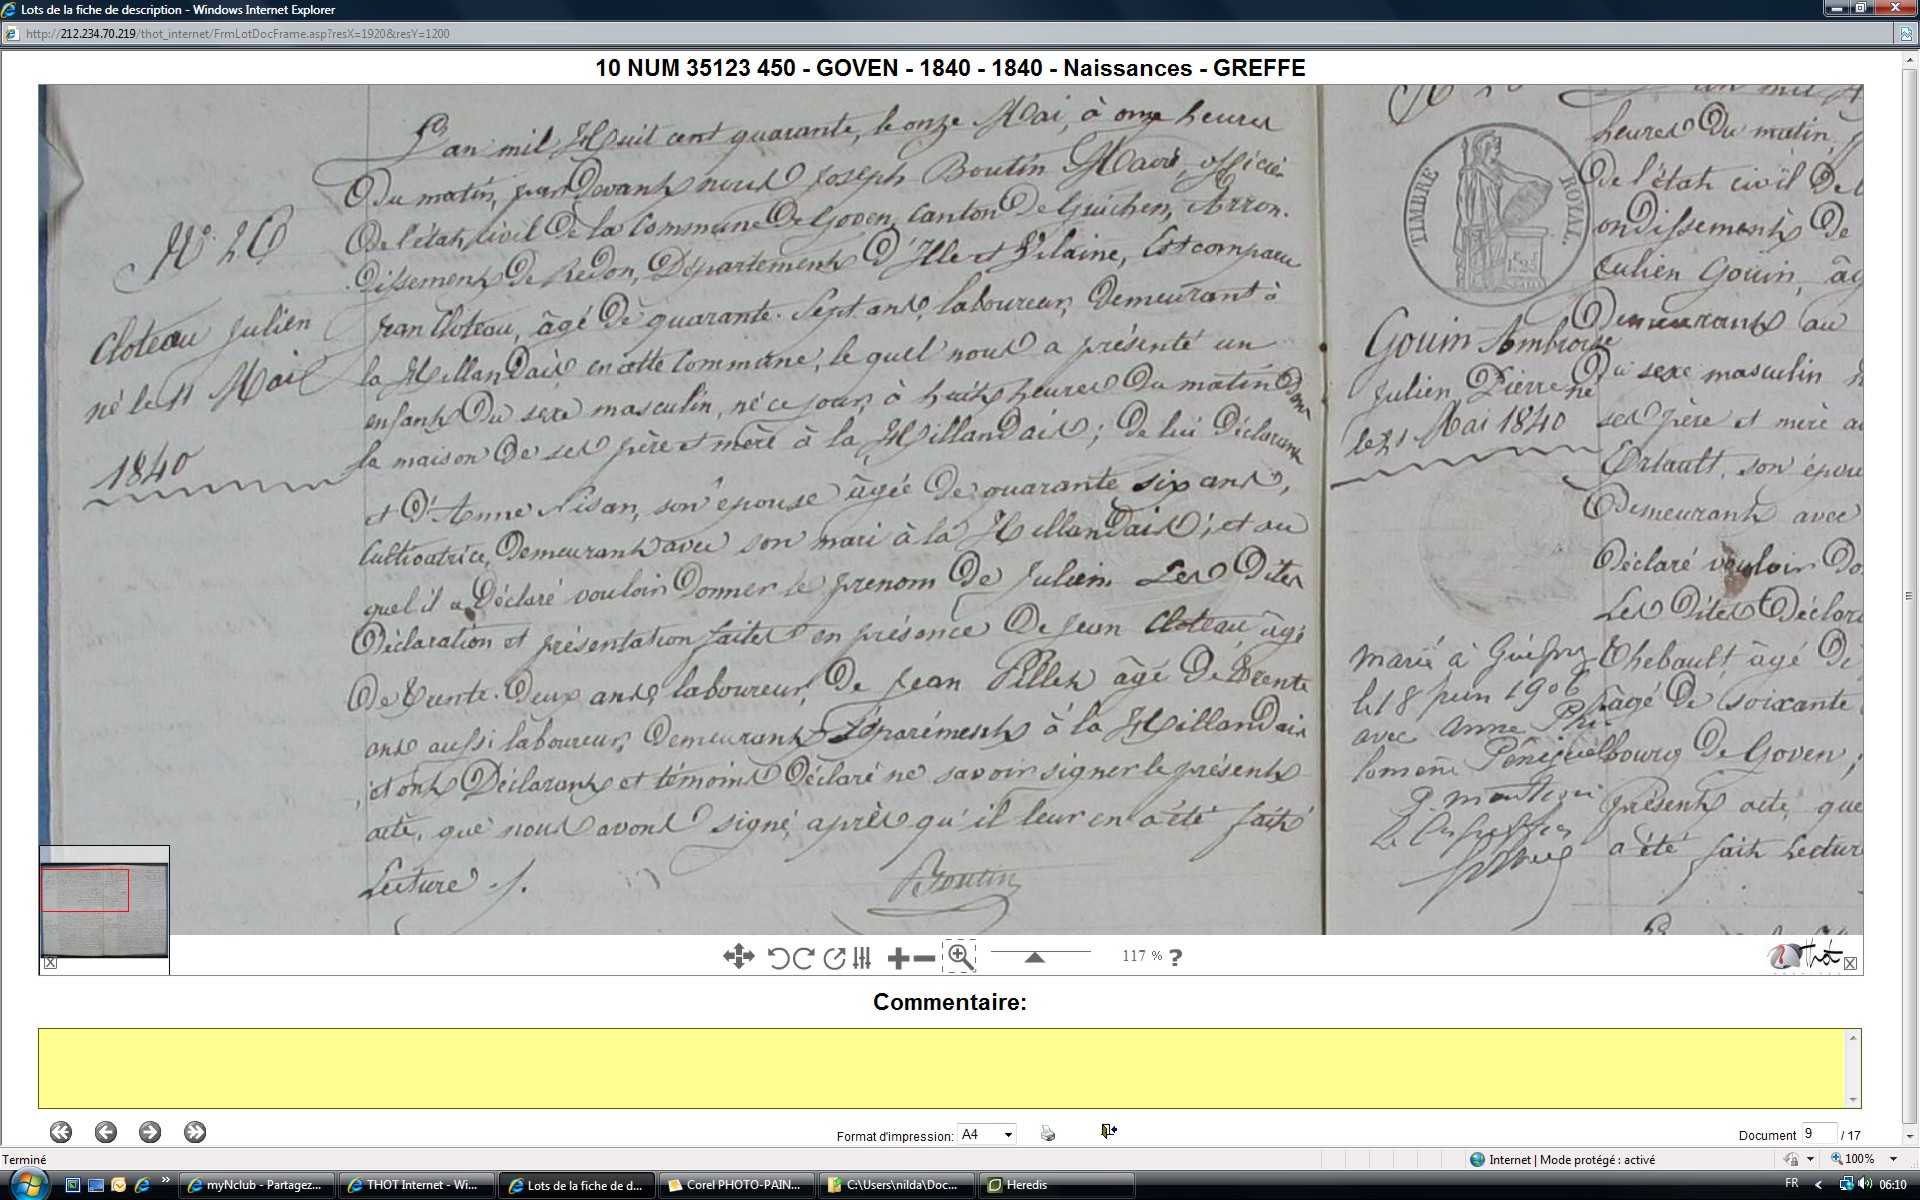 Lots de la fiche de description - Windows Internet Explorer
http://212.234.70.219/thot_internet/FrmLotDocFrame.asp?resX=1920&resY=1200
10 NUM 35123 450 - GOVEN - 1840 - 1840 - Naissances - GREFFE
Cloteau Julien
né le 11 Mai
1840
L'an mil Huit cent quarante, le onze Mai, à onze heures
Du matin, par Devant nous Joseph Boutin Maire, officier
De l'état civil De la Commune De Goven, Canton De Guichen, Arron-
dissement De Redon, Département D'Ille et Vilaine, Est comparu
Jean Cloteau, âgé De quarante-Sept ans, laboureur, Demeurant à
la Hillandais en cette Commune, le quel nous a présenté un
enfant Du sexe masculin, né ce jour, à huit heures Du matin Dans
la maison De ses père et mère à la Hillandais; De lui Déclarant
et D'Anne Nisan, son épouse âgée De quarante six ans,
Cultivatrice, Demeurant avec son mari à la Hillandais; et au
quel il a Déclaré vouloir Donner le prenom De Julien Les Dites
Déclaration et présentation faites en présence De Jean Cloteau âgé
De Trente-Deux ans, laboureur, De Jean Pillet âgé De Trente
ans aussi laboureur, Demeurant Séparément à la Hillandais
et ont Déclarant et témoins Déclaré ne savoir signer le présent
acte, que nous avons signé, après qu'il leur en a été fait
Lecture ./.
Boutin
TIMBRE ROYAL
Gouin Ambroise
Julien Pierre né
le 21 Mai 1840
marié à
le 18 Juin 1906
avec Anne
heures Du matin,
De l'état civil De
ondissement De
Julien Gouin, âg
Demeurant au
Du sexe masculin
ses père et mère
son épou
Demeurant avec
Déclaré vouloir Do
Les Dites Déclara
Thebault, âgé De
âgé De Soixante
bourg De Goven;
présent acte, que
a été fait Lectur
117 % ?
Thot
Commentaire:
Format d'impression: A4
Document 9 / 17
Terminé
Internet | Mode protégé : activé
100%
myNclub - Partagez...
THOT Internet - Wi...
Lots de la fiche de d...
Corel PHOTO-PAIN...
C:\Users\nilda\Doc...
Heredis
FR
06:10